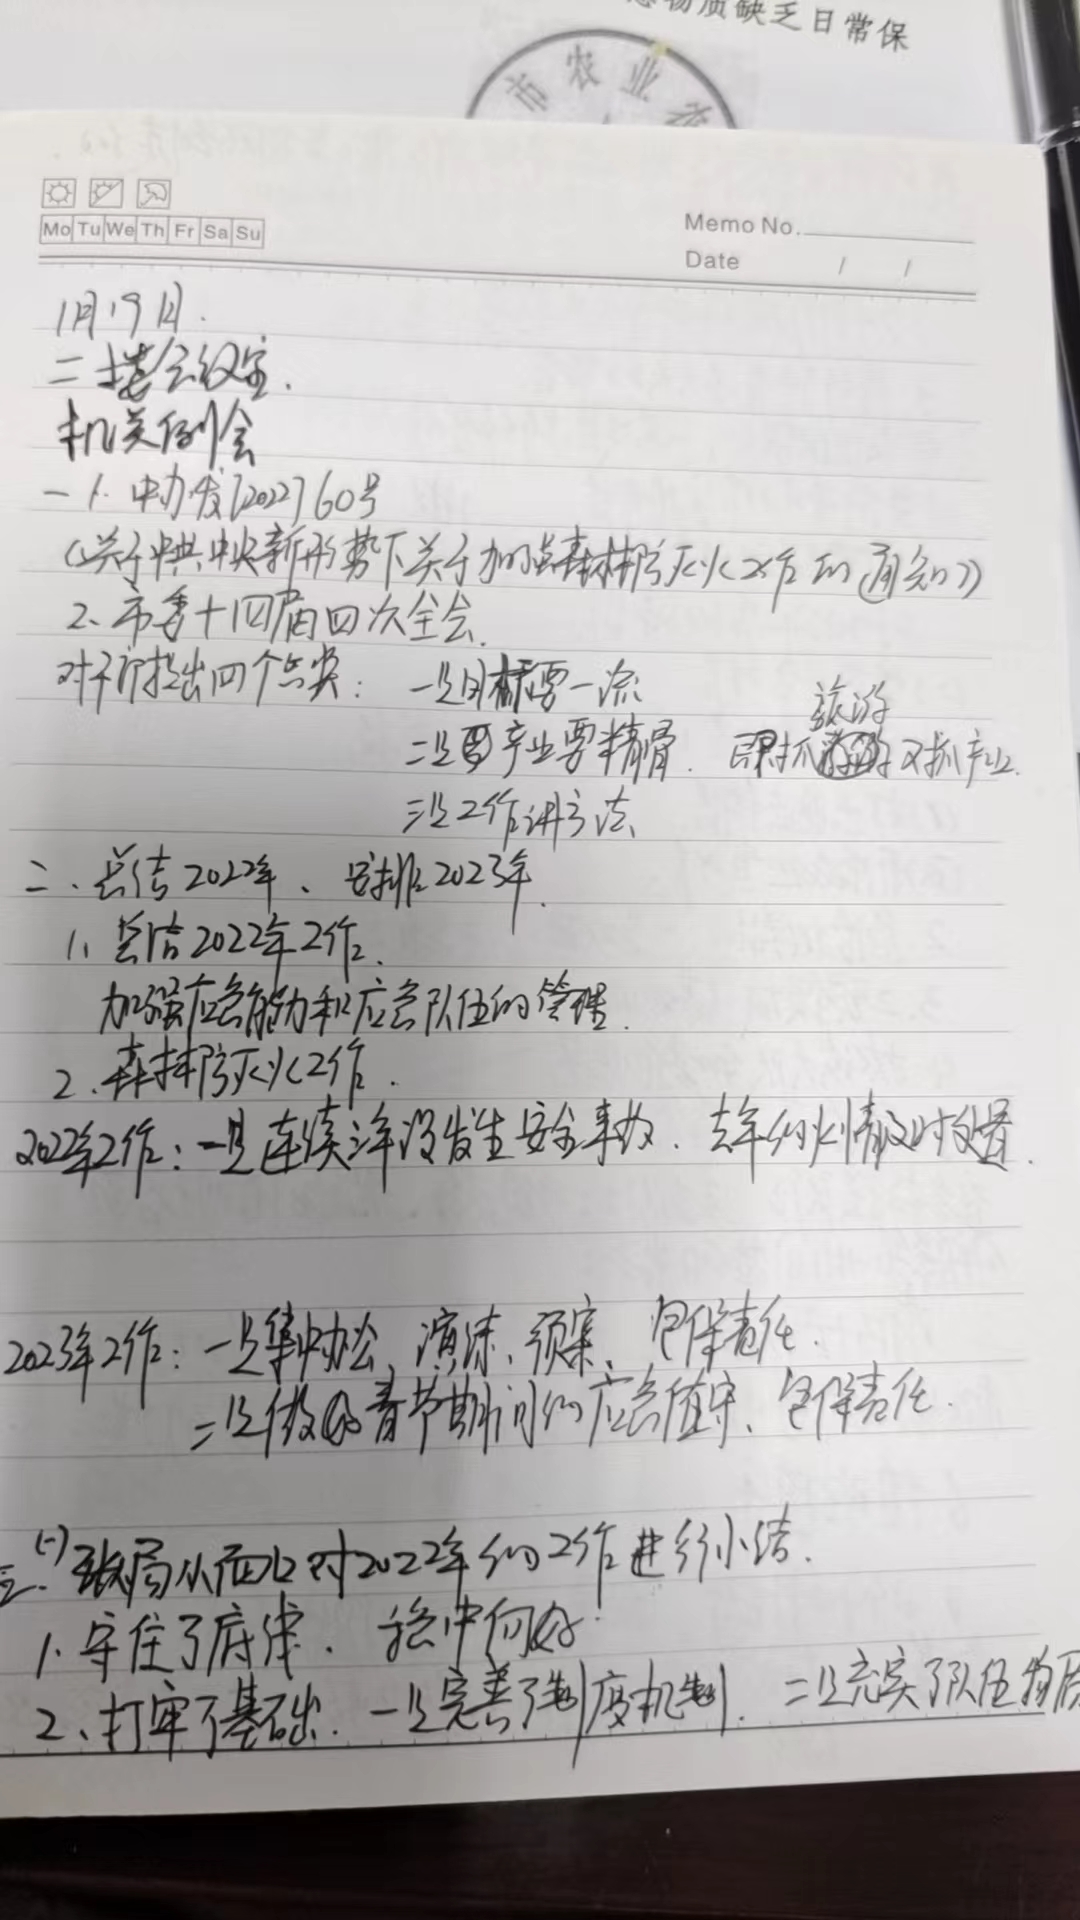 物质缺乏日常保
市农业
Mo Tu We Th Fr Sa Su
Memo No.
Date / /
1月19日.
二楼会议室.
机关例会
一、1. 中办发[2022]60号
(《关于中共中央新形势下关于加强森林防灭火工作的通知》)
2、市委十四届四次全会.
对 提出四个 : 一是目标要一流
旅游
二是 产业要精 . 既抓 又抓产业.
三是工作讲方法
二、总结2022年、安排2023年.
1、总结2022年工作.
加强应急能力和应急队伍的管理.
2、森林防灭火工作.
2022年工作: 一是连续 年没发生安全事故. 去年的火情及时处置.
2023年工作: 一是集中办公、演练、预案、包保责任.
二是做好春节期间的应急值守、包保责任.
三、(一) 张局从 对2022年的工作进行小结.
1、守住了底线. 稳中向好.
2、打牢了基础. 一是完善了制度机制. 二是充实了队伍物质